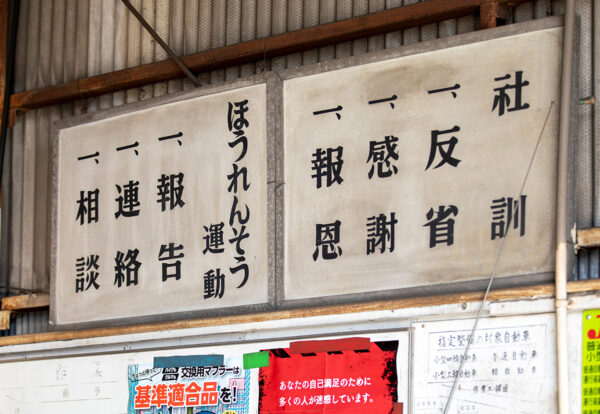 社訓
一、反省
一、感謝
一、報恩
ほうれんそう
運動
一、報告
一、連絡
一、相談
交換用マフラーは
基準適合品を!
あなたの自己満足のために
多くの人が迷惑しています。
指定整備の対象自動車
普通自動車